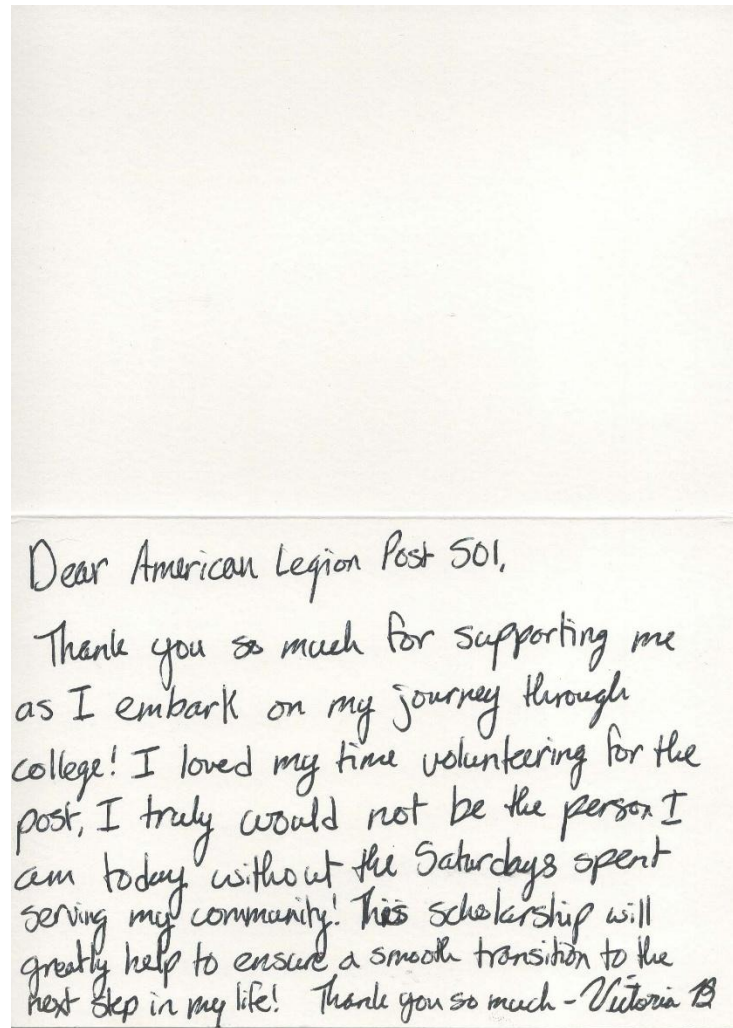 Dear American Legion Post 501,
Thank you so much for supporting me
as I embark on my journey through
college! I loved my time volunteering for the
post, I truly would not be the person I
am today without the Saturdays spent
serving my community! This scholarship will
greatly help to ensure a smooth transition to the
next step in my life! Thank you so much - Victoria B